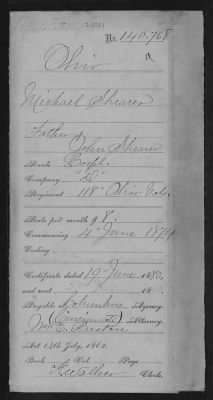 (3-173.)
No. 140.768
Ohio
Michael Shearer
Father of
John Shearer
Rank Corpl.
Company "D"
Regiment 118" Ohio Vols.
Rate per month $ 8.
Commencing 4" June 1874
Ending
Certificate dated 19" June 1880,
and sent
Payable Columbus Agency.
(Cincinnati)
E. Preston Attorney.
Act 14th July, 1862.
Book Vol. Page
Clerk.